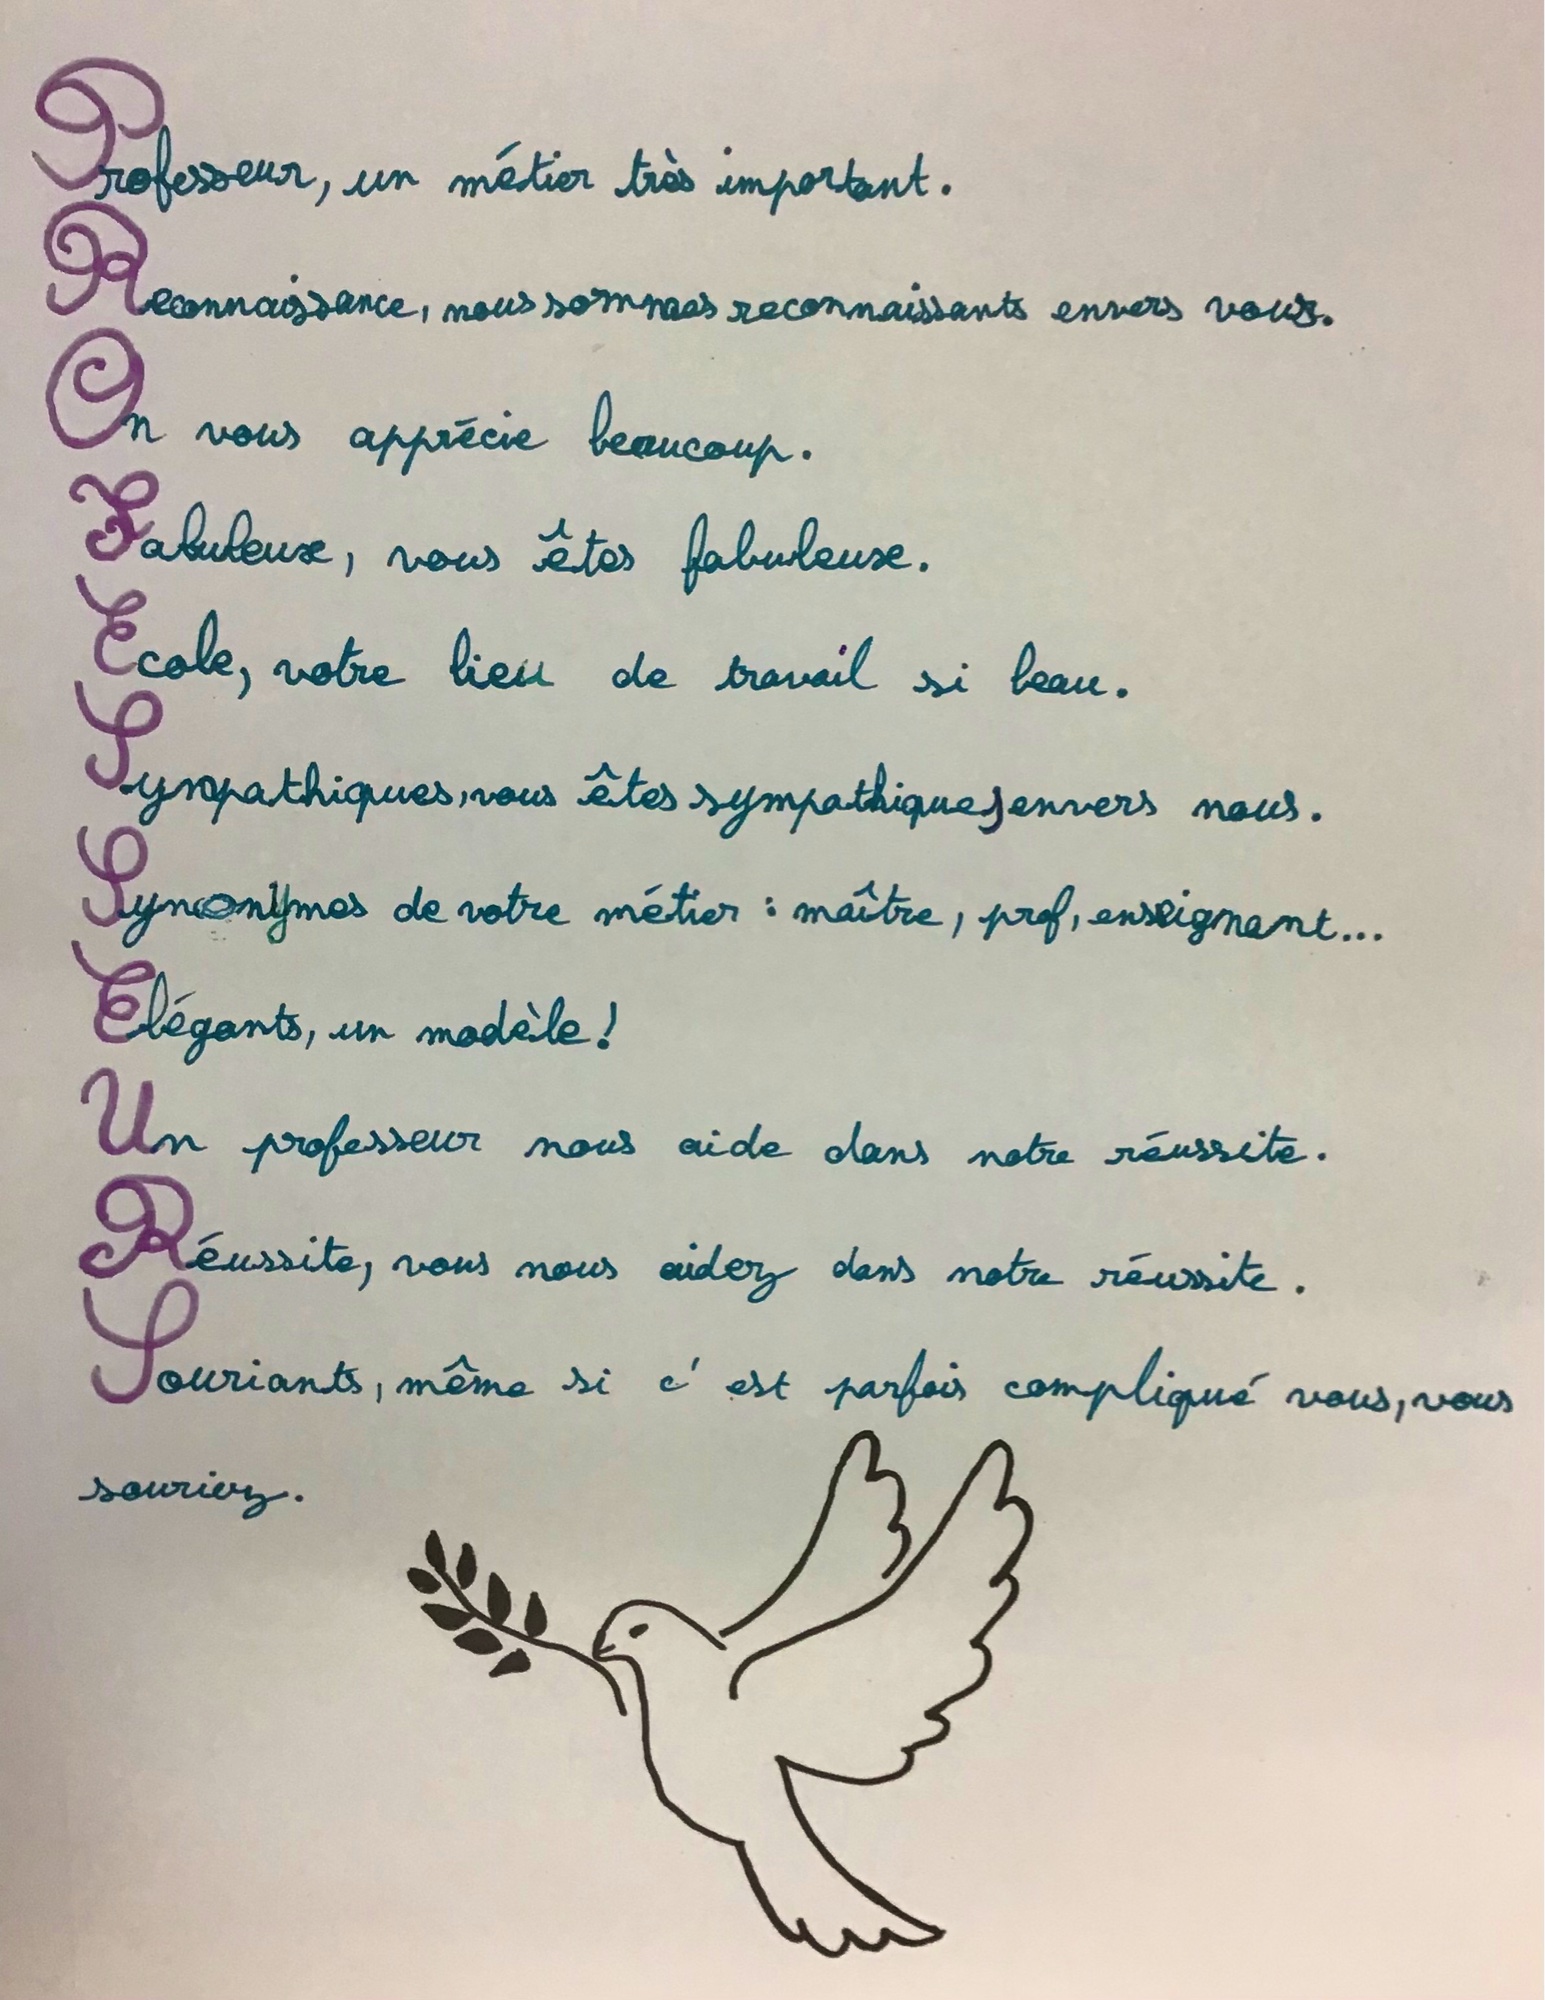 Professeur, un métier très important.
Reconnaissance, nous sommes reconnaissants envers vous.
On vous apprécie beaucoup.
Fabuleuse, vous êtes fabuleuse.
Ecole, votre lieu de travail si beau.
Sympathiques, vous êtes sympathiques envers nous.
Synonymes de votre métier : maître, prof, enseignant...
Elégants, un modèle !
Un professeur nous aide dans notre réussite.
Réussite, vous nous aidez dans notre réussite.
Souriants, même si c'est parfois compliqué vous, vous
souriez.